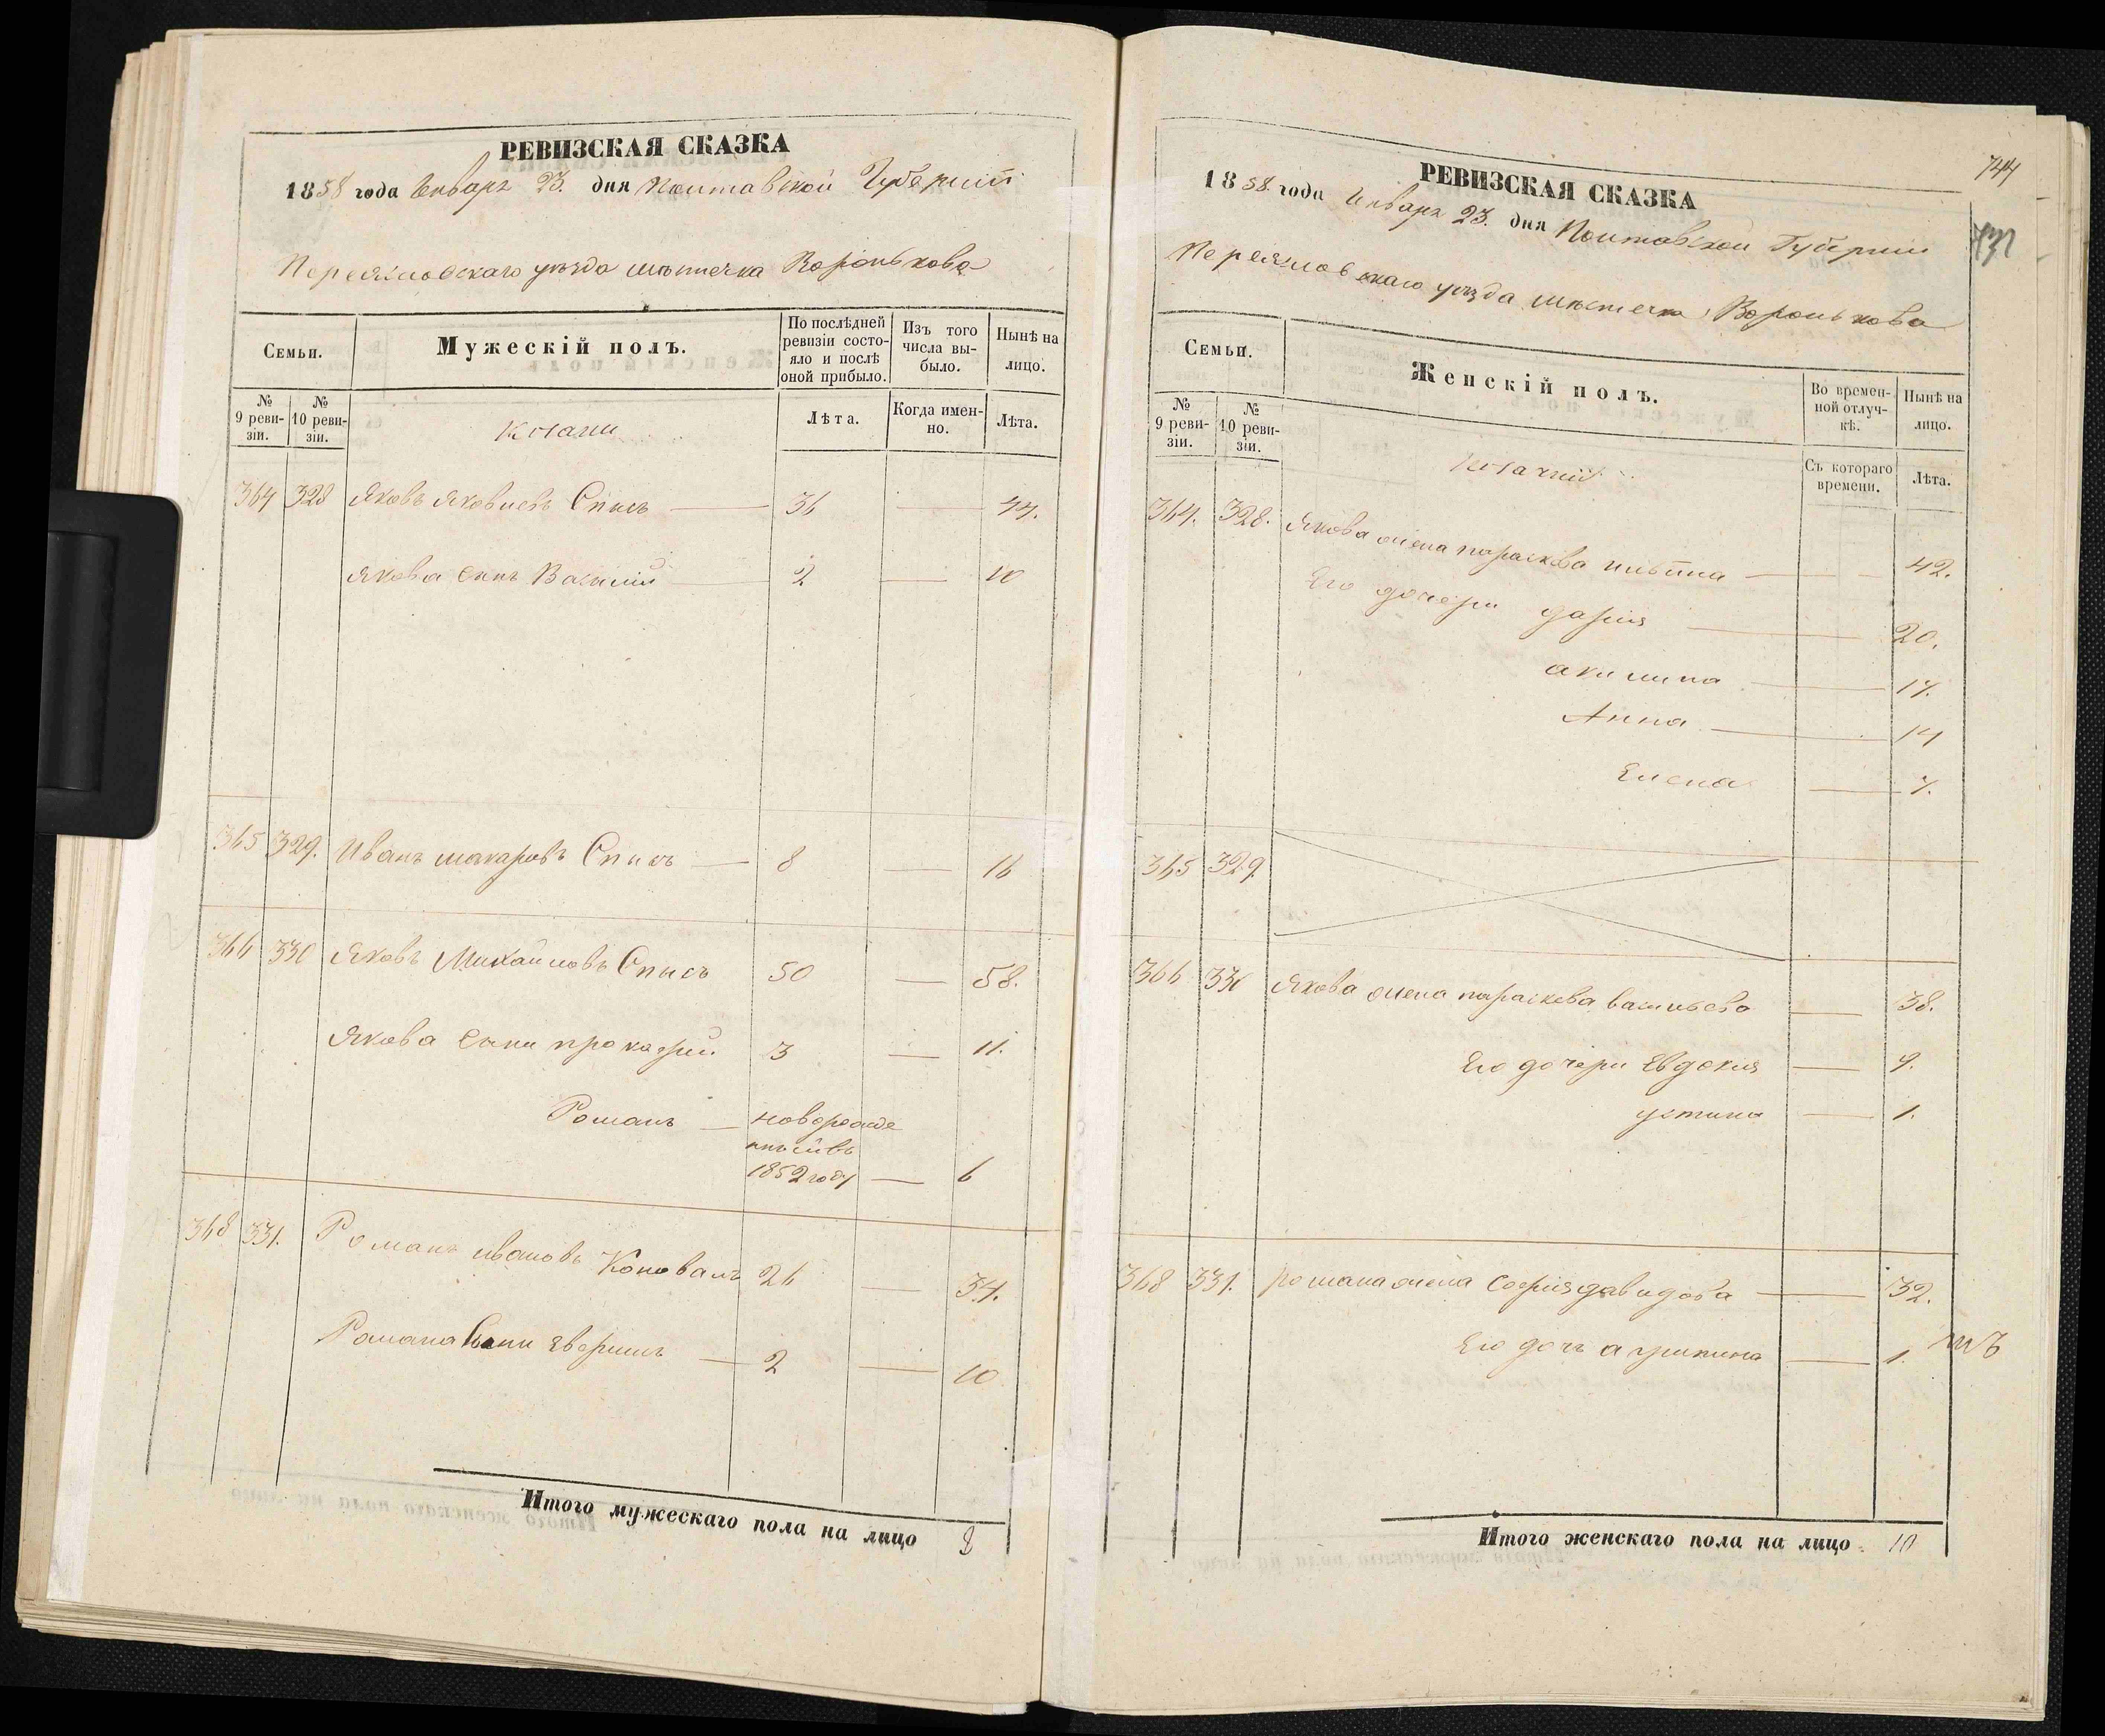 РЕВИЗСКАЯ СКАЗКА
1858 года Января 23. дня Полтавской Губерніи
Переяславскаго уѣзда мѣстечка Воронькова
Семьи.
Мужескій полъ.
По послѣдней ревизіи состояло и послѣ оной прибыло.
Изъ того числа выбыло.
Нынѣ на лицо.
№ 9 ревизіи.
№ 10 ревизіи.
Козаки
Лѣта.
Когда именно.
Лѣта.
364 328 Яковъ Яковлевъ Списъ — 36 — 44.
Якова сынъ Василій — 2 — 10
365 329. Иванъ Макаровъ Списъ — 8 — 16
366 330 Яковъ Михайловъ Списъ 50 — 58.
Якова сыны Прокофій 3 — 11.
Романъ — новорожде
1852 году — 6
368 331. Романъ Ивановъ Коновалъ 26 — 34.
Романа сынъ — 2 — 10
Итого мужескаго пола на лицо 8
744
731
РЕВИЗСКАЯ СКАЗКА
1858. года Января 23. дня Полтавской Губерніи
Переяславскаго уѣзда мѣстечка Воронькова
Семьи.
Женскій полъ.
Во временной отлучкѣ.
Нынѣ на лицо.
№ 9 ревизіи.
№ 10 ревизіи.
Съ котораго времени.
Лѣта.
364. 328. Якова жена Параскева — 42.
Его дочери Дарія — 20.
Акилина — 17.
Анна — 14
Елена — 7.
365 329
366 330 Якова жена Параскева Васильева — 38.
Его дочери Евдокия — 9.
Устина — 1.
368 331. Романа жена Софія Давидова — 32.
Его дочь Агрипина — 1.
Итого женскаго пола на лицо 10